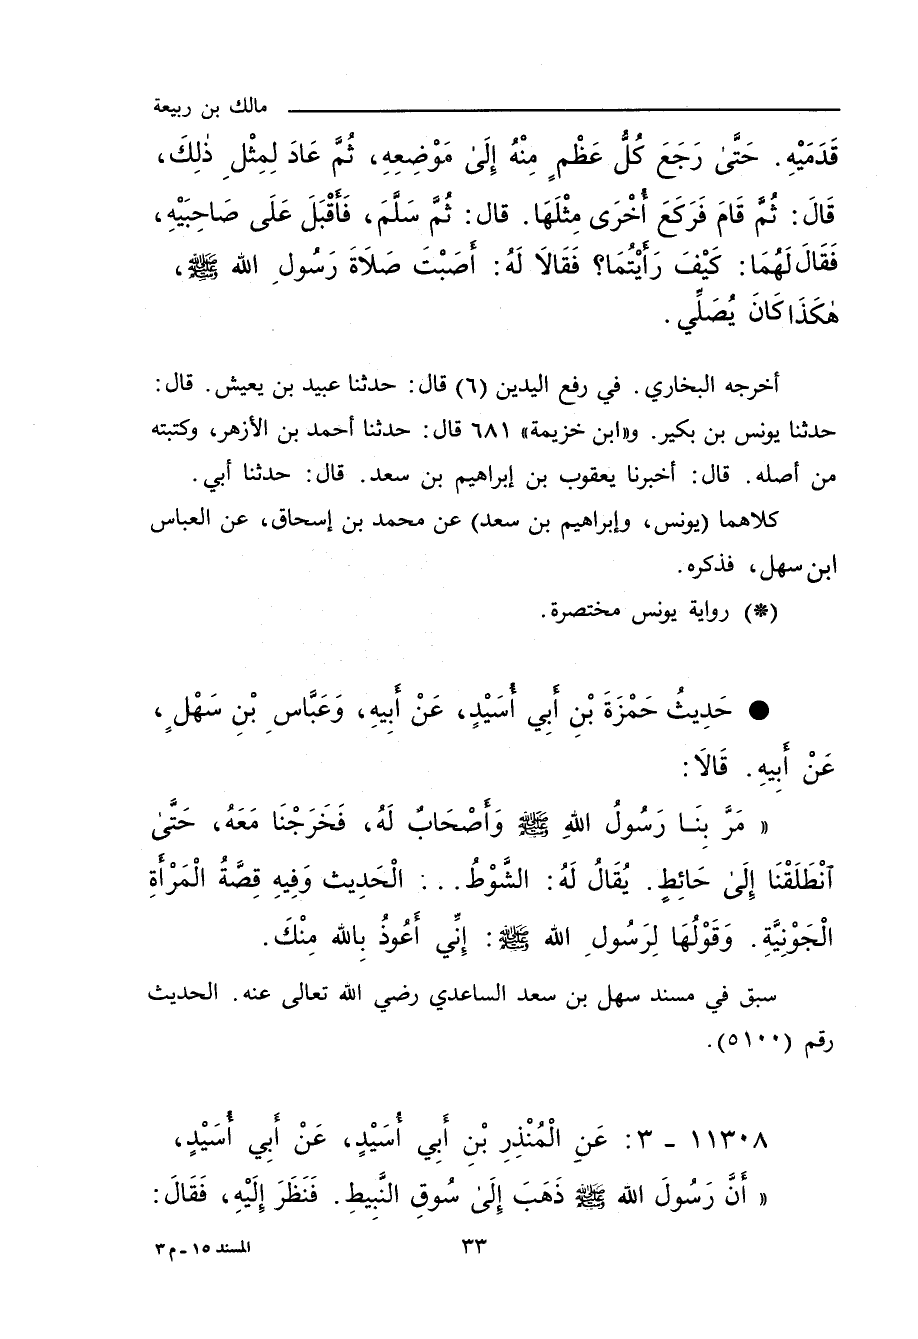 مالك بن ربيعة
قَدَمَيْهِ. حَتَّىٰ رَجَعَ كُلُّ عَظْمٍ مِنْهُ إِلَىٰ مَوْضِعِهِ، ثُمَّ عَادَ لِمِثْلِ ذٰلِكَ،
قَالَ: ثُمَّ قَامَ فَرَكَعَ أُخْرَى مِثْلَهَا. قال: ثُمَّ سَلَّمَ، فَأَقْبَلَ عَلَى صَاحِبَيْهِ،
فَقَالَ لَهُمَا: كَيْفَ رَأَيْتُمَا؟ فَقَالَا لَهُ: أَصَبْتَ صَلَاةَ رَسُولِ الله ﷺ،
هٰكَذَا كَانَ يُصَلِّي.
أخرجه البخاري. في رفع اليدين (٦) قال: حدثنا عبيد بن يعيش. قال:
حدثنا يونس بن بكير. و«ابن خزيمة» ٦٨١ قال: حدثنا أحمد بن الأزهر، وكتبته
من أصله. قال: أخبرنا يعقوب بن إبراهيم بن سعد. قال: حدثنا أبي.
كلاهما (يونس، وإبراهيم بن سعد) عن محمد بن إسحاق، عن العباس
ابن سهل، فذكره.
(*) رواية يونس مختصرة.
● حَدِيثُ حَمْزَةَ بْنِ أَبي أُسَيْدٍ، عَنْ أَبِيهِ، وَعَبَّاسِ بْنِ سَهْلٍ،
عَنْ أَبِيهِ. قَالَا:
« مَرَّ بِنَا رَسُولُ اللهِ ﷺ وَأَصْحَابٌ لَهُ، فَخَرَجْنَا مَعَهُ، حَتَّىٰ
ٱنْطَلَقْنَا إِلَىٰ حَائِطٍ. يُقَالُ لَهُ: الشَّوْطُ...: الْحَدِيث وَفِيهِ قِصَّةُ الْمَرْأَةِ
الْجَوْنِيَّةِ. وَقَوْلُهَا لِرَسُولِ الله ﷺ: إِنِّي أَعُوذُ بِالله مِنْكَ.
سبق في مسند سهل بن سعد الساعدي رضي الله تعالى عنه. الحديث
رقم (٥١٠٠).
١١٣٠٨ - ٣: عَنِ الْمُنْذِرِ بْنِ أَبي أُسَيْدٍ، عَنْ أَبي أُسَيْدٍ،
« أَنَّ رَسُولَ الله ﷺ ذَهَبَ إِلَىٰ سُوقِ النَّبِيطِ. فَنَظَرَ إِلَيْهِ، فَقَالَ:
٣٣
المسند ١٥ - م ٣